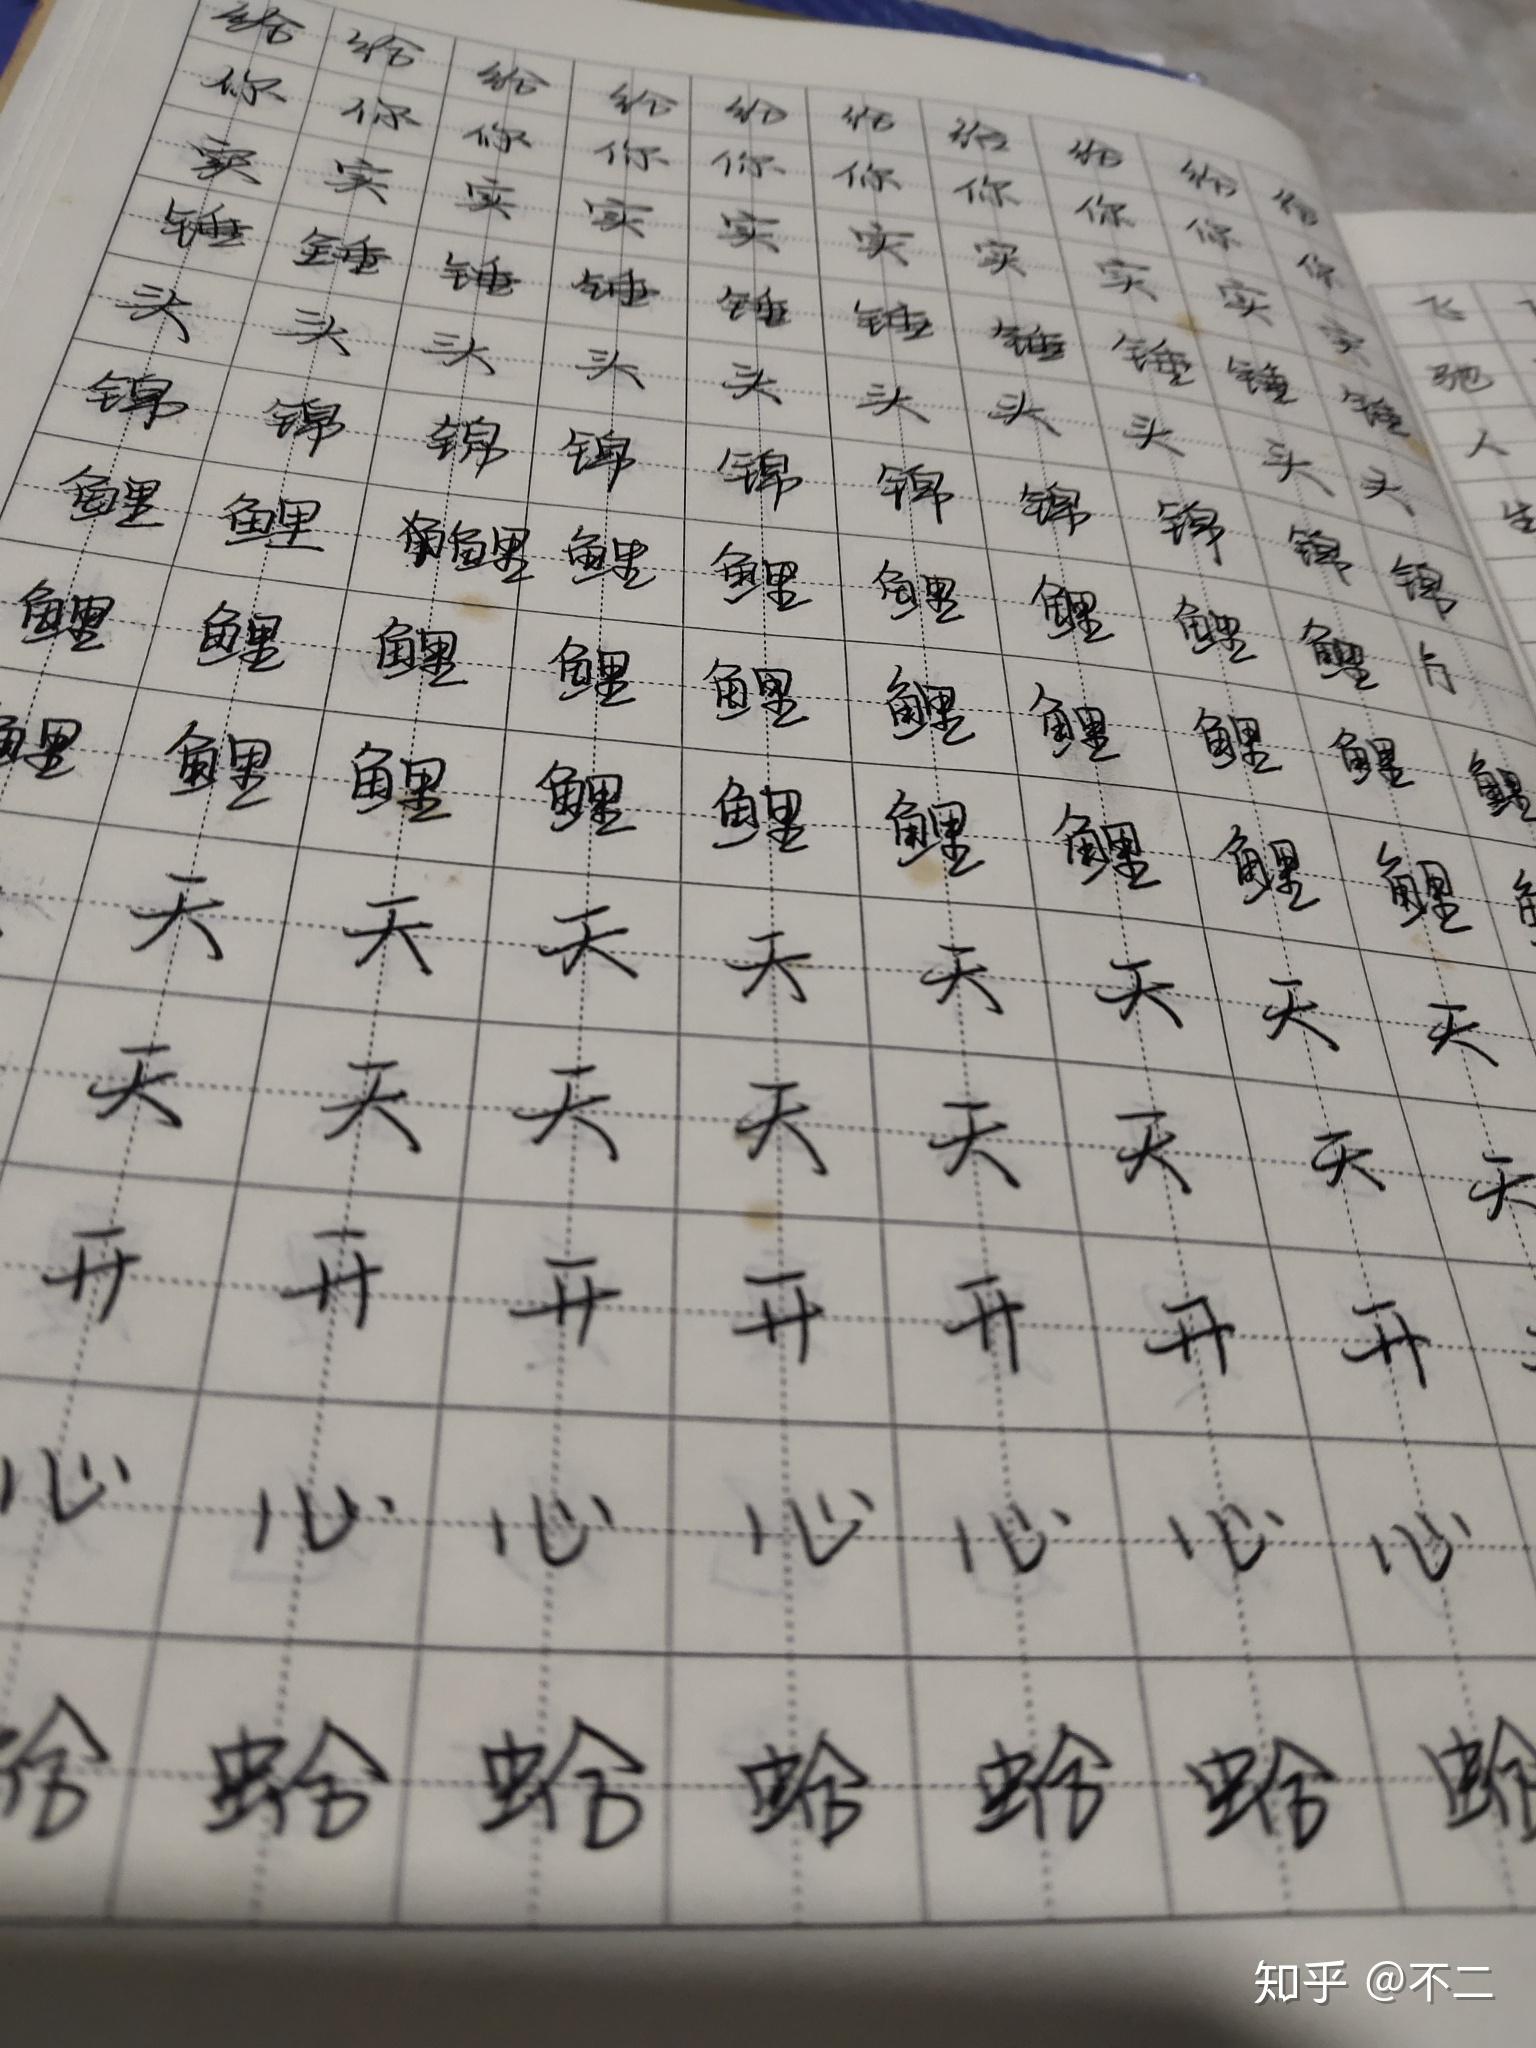 给 给 给 给 给 给 给 给 给 给
你 你 你 你 你 你 你 你 你 你
实 实 实 实 实 实 实 实 实 实
锤 锤 锤 锤 锤 锤 锤 锤 锤 锤
头 头 头 头 头 头 头 头 头 头
锦 锦 锦 锦 锦 锦 锦 锦 锦 锦
鲤 鲤 鲤 鲤 鲤 鲤 鲤 鲤 鲤
鲤 鲤 鲤 鲤 鲤 鲤 鲤 鲤 鲤 鲤
鲤 鲤 鲤 鲤 鲤 鲤 鲤 鲤 鲤
天 天 天 天 天 天 天 天
天 天 天 天 天 天 天 天
开 开 开 开 开 开 开
心 心 心 心 心 心 心
蛤 蛤 蛤 蛤 蛤 蛤
飞
驰
人
生
知乎 @不二